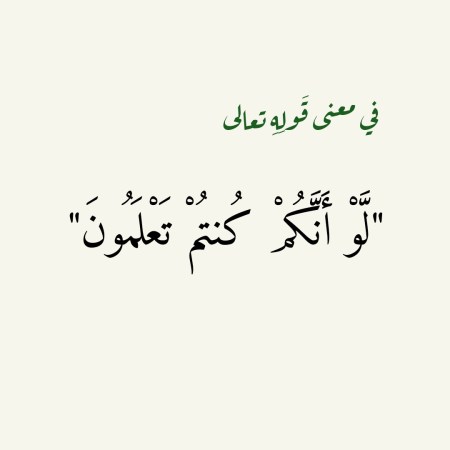 في معنى قَولِه تعالى
"لَّوْ أَنَّكُمْ كُنتُمْ تَعْلَمُونَ"